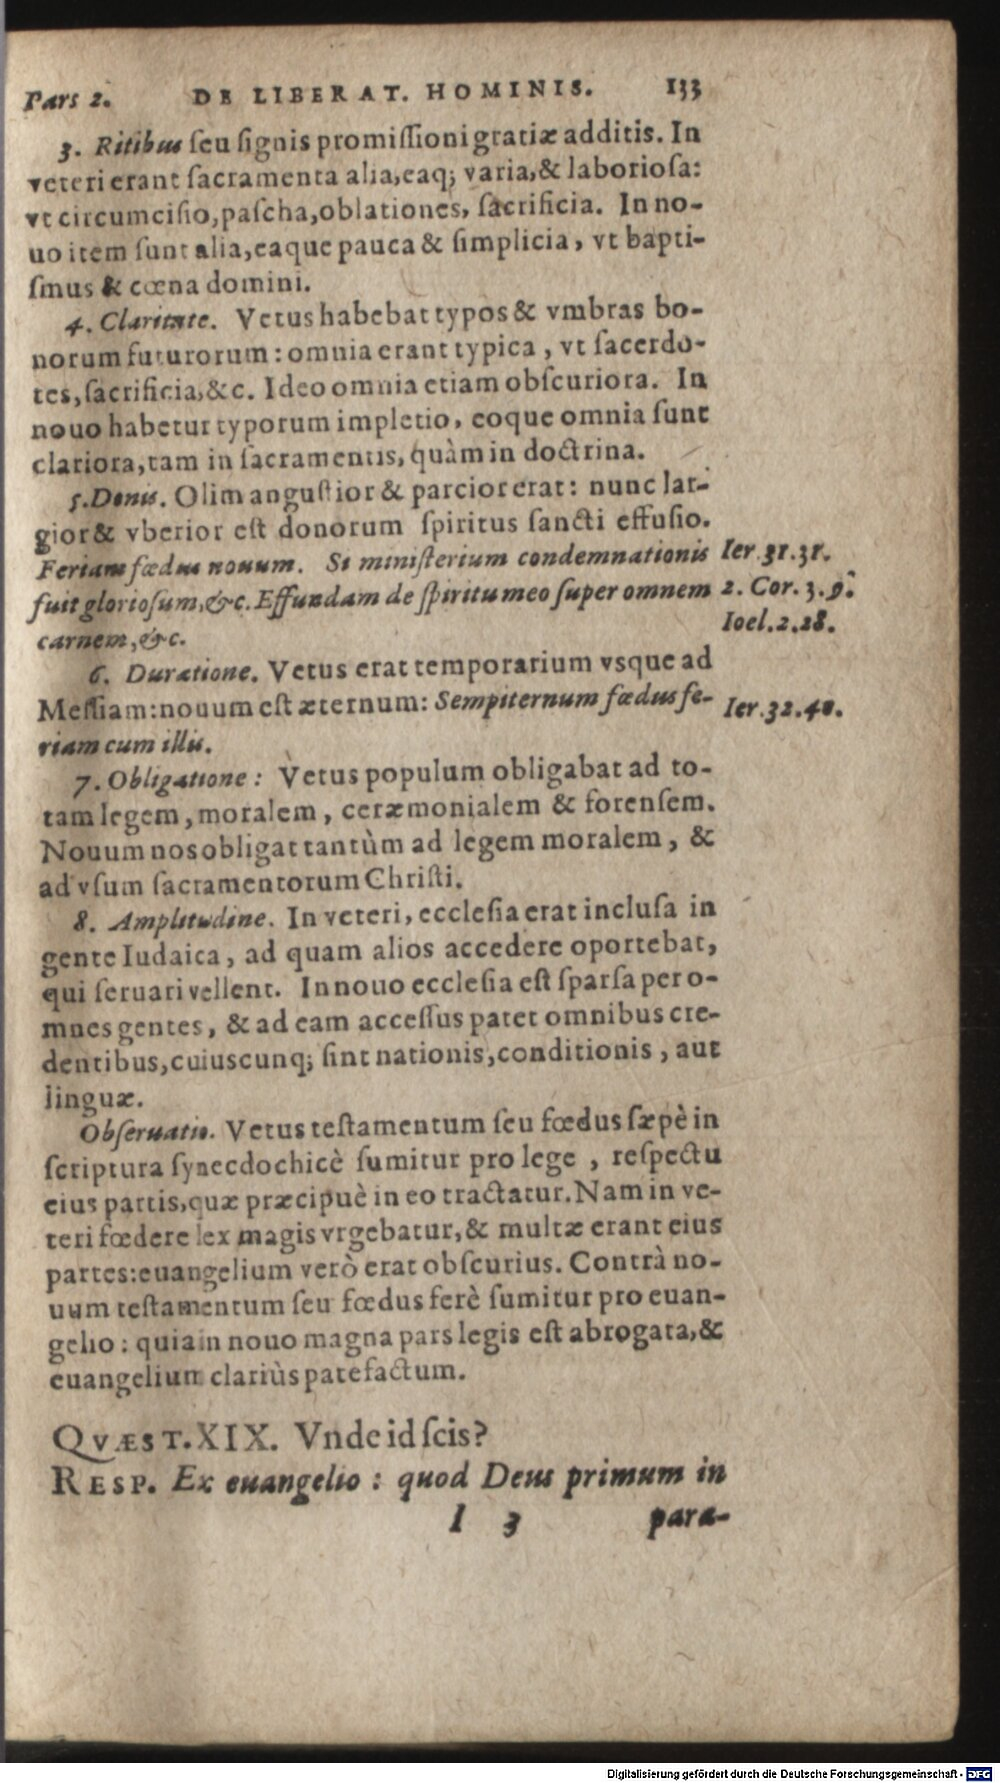 Pars 2. DE LIBERAT. HOMINIS. 133
3. Ritibus seu signis promissioni gratiæ additis. In
veteri erant sacramenta alia, eaq; varia, & laboriosa:
vt circumcisio, pascha, oblationes, sacrificia. In no-
uo item sunt alia, eaque pauca & simplicia, vt bapti-
smus & cœna domini.
4. Claritate. Vetus habebat typos & vmbras bo-
norum futurorum: omnia erant typica, vt sacerdo-
tes, sacrificia, &c. Ideo omnia etiam obscuriora. In
nouo habetur typorum impletio, eoque omnia sunt
clariora, tam in sacramentis, quàm in doctrina.
5. Donis. Olim angustior & parcior erat: nunc lar-
gior & vberior est donorum spiritus sancti effusio.
Feriam fœdus nouum. Si ministerium condemnationis Ier. 31. 31.
fuit gloriosum, &c. Effundam de spiritu meo super omnem 2. Cor. 3. 9.
carnem, &c. Ioel. 2. 28.
6. Duratione. Vetus erat temporarium vsque ad
Messiam: nouum est æternum: Sempiternum fœdus fe- Ier. 32. 40.
riam cum illis.
7. Obligatione: Vetus populum obligabat ad to-
tam legem, moralem, ceræmonialem & forensem.
Nouum nos obligat tantùm ad legem moralem, &
ad vsum sacramentorum Christi.
8. Amplitudine. In veteri, ecclesia erat inclusa in
gente Iudaica, ad quam alios accedere oportebat,
qui seruari vellent. In nouo ecclesia est sparsa per o-
mnes gentes, & ad eam accessus patet omnibus cre-
dentibus, cuiuscunq; sint nationis, conditionis, aut
linguæ.
Obseruatio. Vetus testamentum seu fœdus sæpè in
scriptura synecdochicè sumitur pro lege, respectu
eius partis, quæ præcipuè in eo tractatur. Nam in ve-
teri fœdere lex magis vrgebatur, & multæ erant eius
partes: euangelium verò erat obscurius. Contrà no-
uum testamentum seu fœdus ferè sumitur pro euan-
gelio: quia in nouo magna pars legis est abrogata, &
euangelium clariùs patefactum.
QVÆST. XIX. Vnde id scis?
RESP. Ex euangelio: quod Deus primum in
I 3 para-
Digitalisierung gefördert durch die Deutsche Forschungsgemeinschaft - DFG